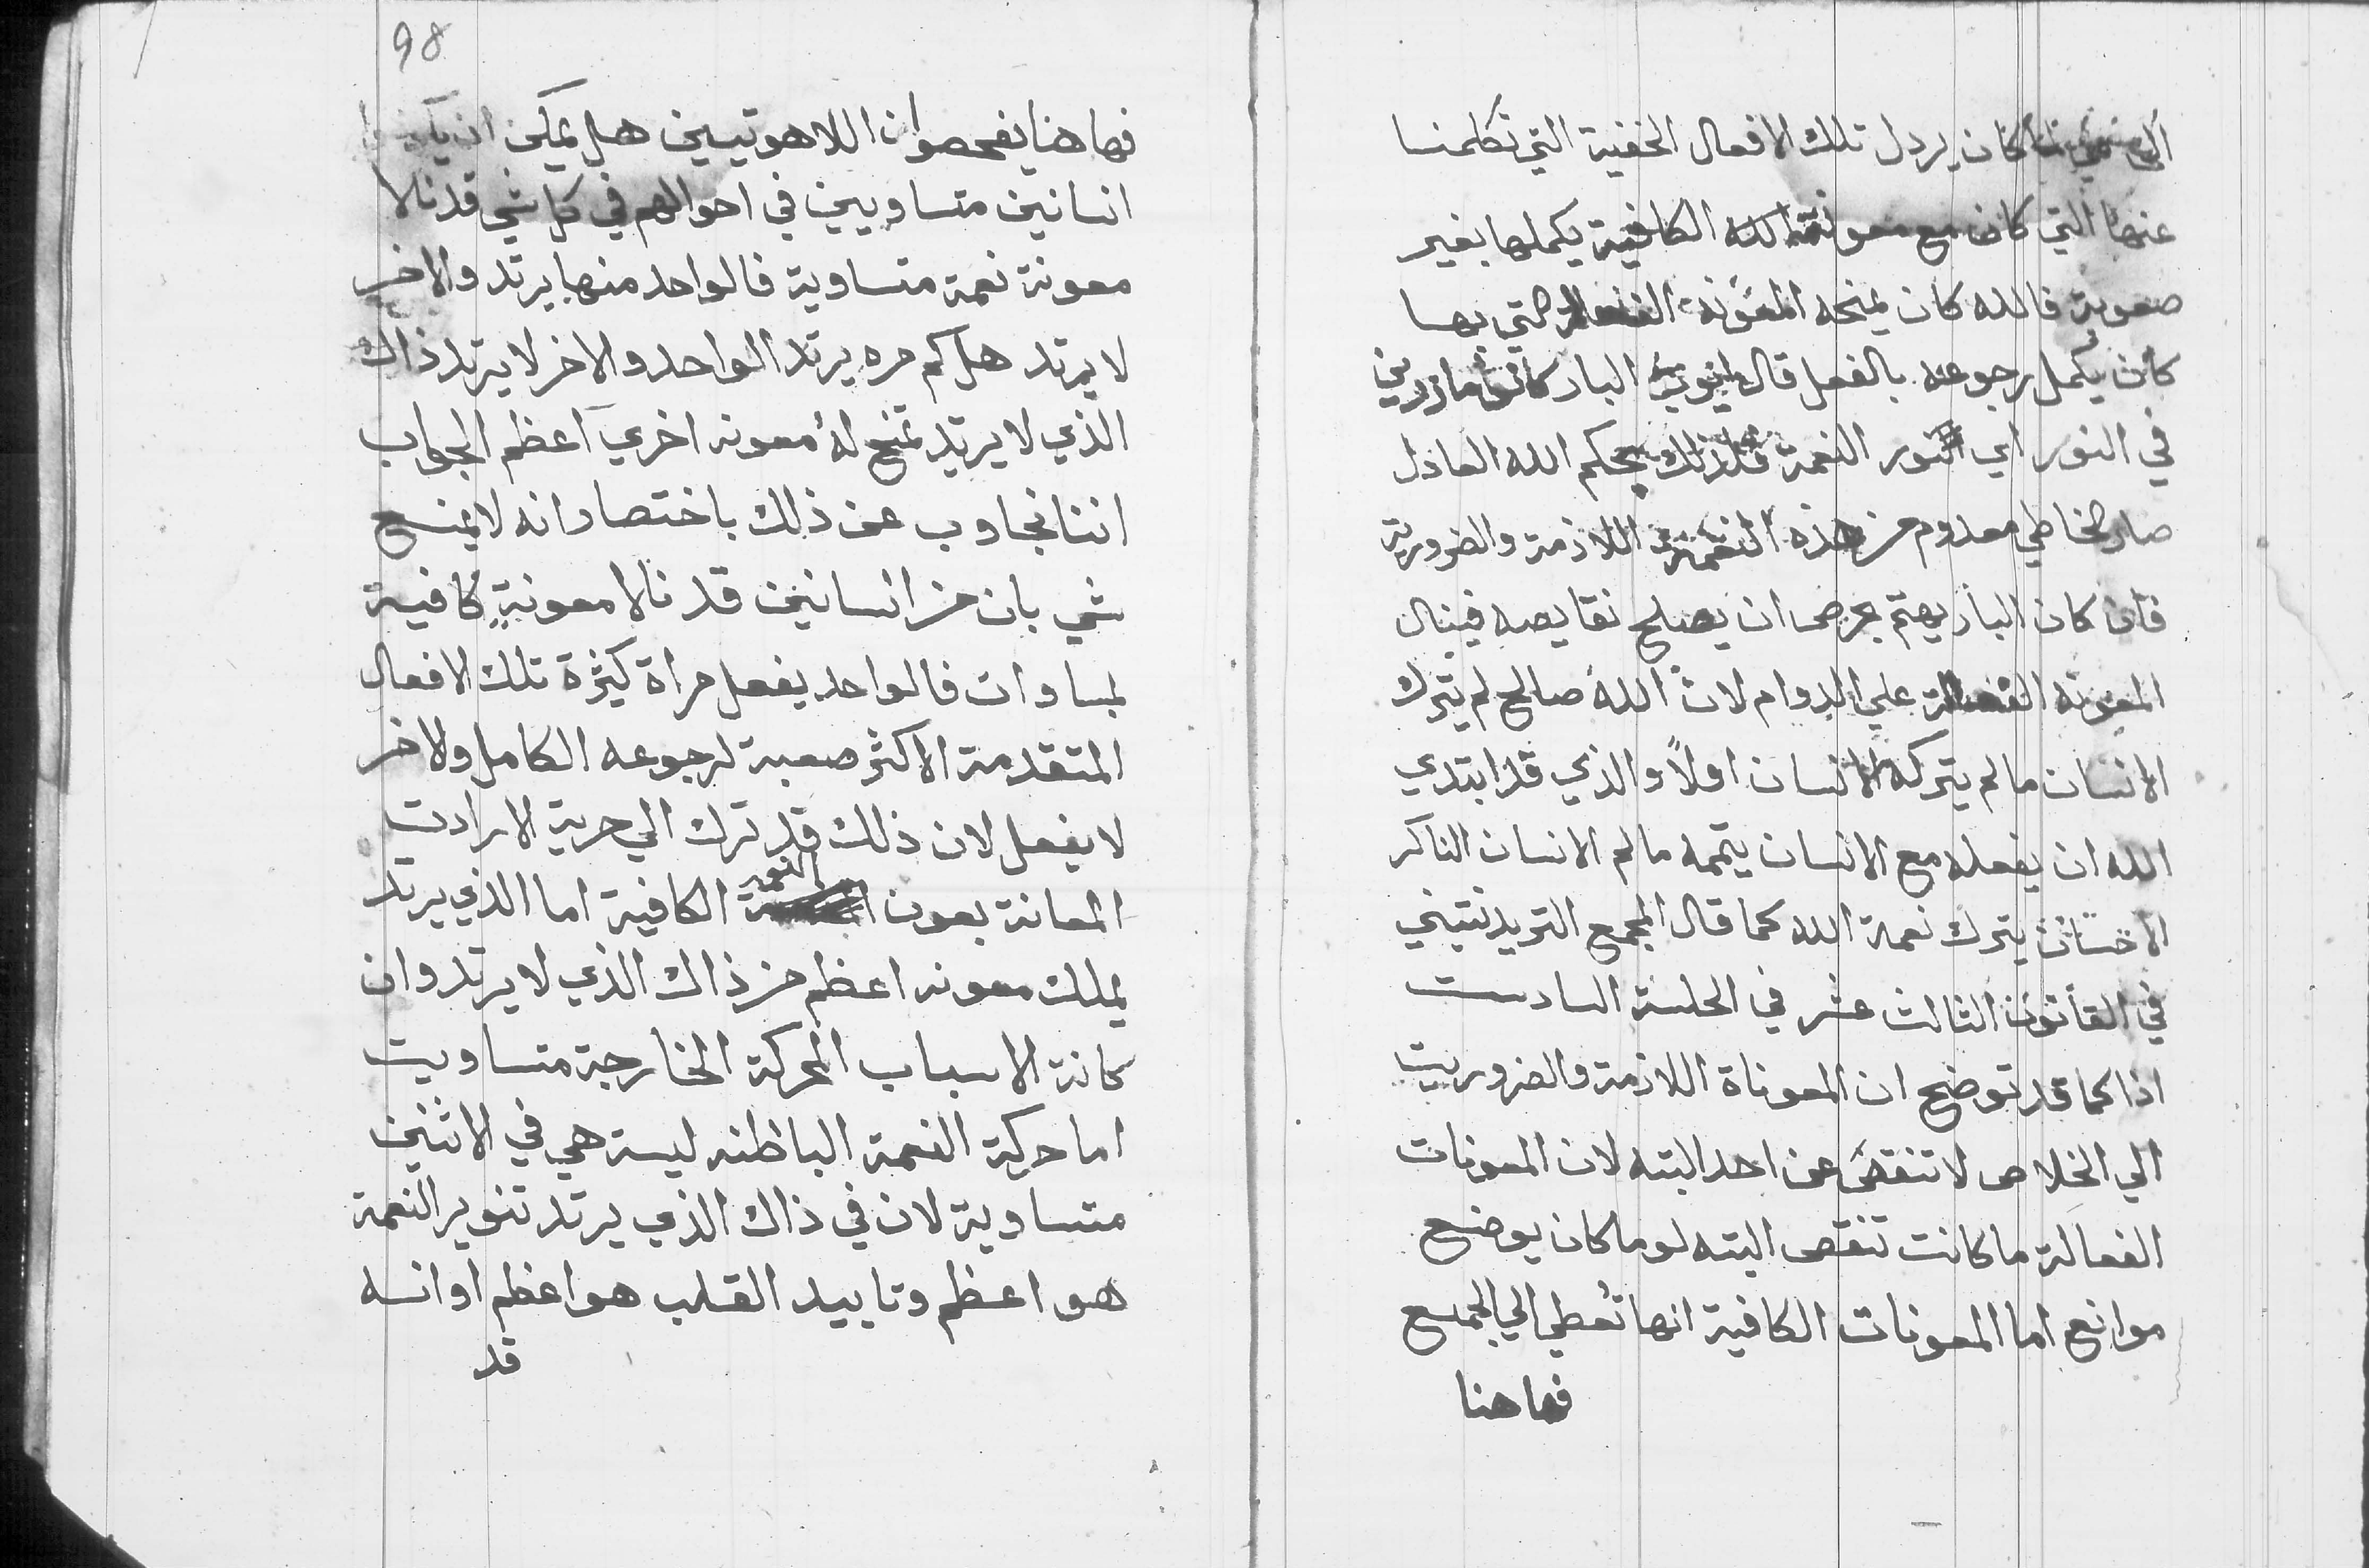 كان يردل تلك الافعال الخفية التي تكلمنا
عنها التي كان مع معونة الله الكافية يكملها بغير
صعوبة فالله كان يمنحه المعونة الفعالة التي بها
كان يكمل رجوعه بالفعل قال البار
في النور اي النعمة فلذلك بحكم الله العادل
صار الخاطي معدوم من هذه النعمة اللازمة والضرورية
فان كان البار يهتم بحرص ان يصلح نقايصه فينال
المعونة الفعالة علي الدوام لان الله صالح لم يترك
الانسان ما لم يتركه الانسان اولاً والذي قد ابتدي
الله ان يفعله مع الانسان يتممه ما لم الانسان الناكر
الاحسان يترك نعمة الله كما قال المجمع التريدنتيني
في القانون الثالث عشر في الجلسة السادست
اذا كما قد توضح ان المعوناة اللازمة والضروريت
الي الخلاص لا تنقص عن احد البته لان المعونات
الفعالة ما كانت تنقص البته لو ما كان يوضح
موانع اما المعونات الكافية انها تُعطي الي الجمع
فهاهنا
98
فهاهنا يفحصوان اللاهوتيين هل يمكن ان
انسانين متساويين في احوالهم في كل شي قد نالا
معونة نعمة متساوية فالواحد منها يرتد والاخر
لا يرتد هل كم مره يرتد الواحد والاخر لا يرتد ذاك
الذي لا يرتد تمنح له معونه اخري اعظم الجواب
اننا نجاوب عن ذلك باختصار انه لا يمنع
شي بان من انسانين قد نالا معونةٍ كافية
لمساوات فالواحد يفعل مراة كثيرة تلك الافعال
المتقدمة الاكثر صعبة لرجوعه الكامل والاخر
لا يفعل لان ذلك قد ترك الي حرية الارادت
المعانة بعون النعمة الكافية اما الذي يرتد
يملك معونه اعظم من ذاك الذي لا يرتد وان
كانة الاسباب المحركة الخارجة متساويت
اما حركة النعمة الباطنه ليسة هي في الاثنين
متساوية لان في ذاك الذي يرتد تنوير النعمة
هو اعظم وتاييد القلب هو اعظم او انسه
قد